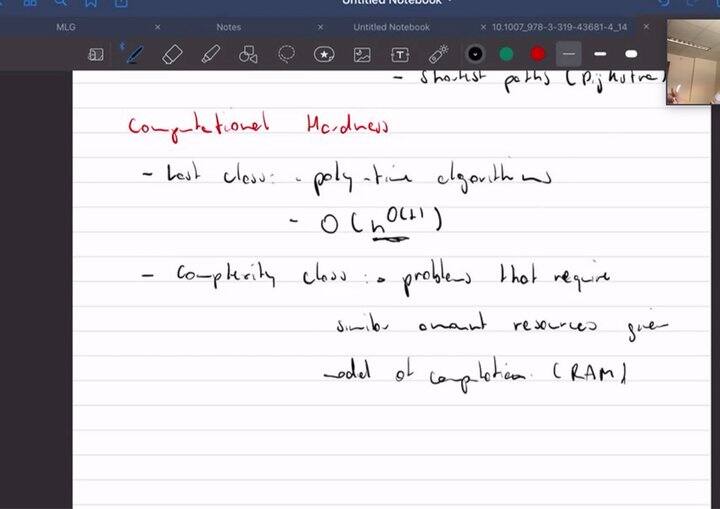 Untitled Notebook
MLG
Notes
Untitled Notebook
10.1007_978-3-319-43681-4_14
- Shortest paths (Dijkstra)
Computational Hardness
- Last class: - poly-time algorithms
- O(n^O(1))
- Complexity class: - problems that require
similar amount resources given
model of computation (RAM)